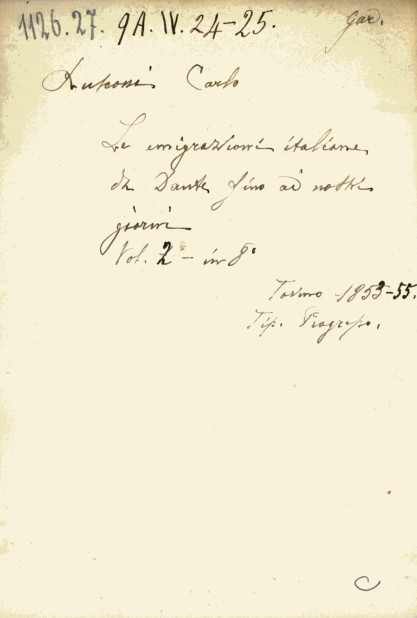 1126.27. 9A. IV. 24-25. Gad.
Antoni Carlo
Le emigrazioni italiane
da Dante fino ai nostri
giorni
Vol. 2 - in 8°
Torino 1853-55.
Tip. Progresso.